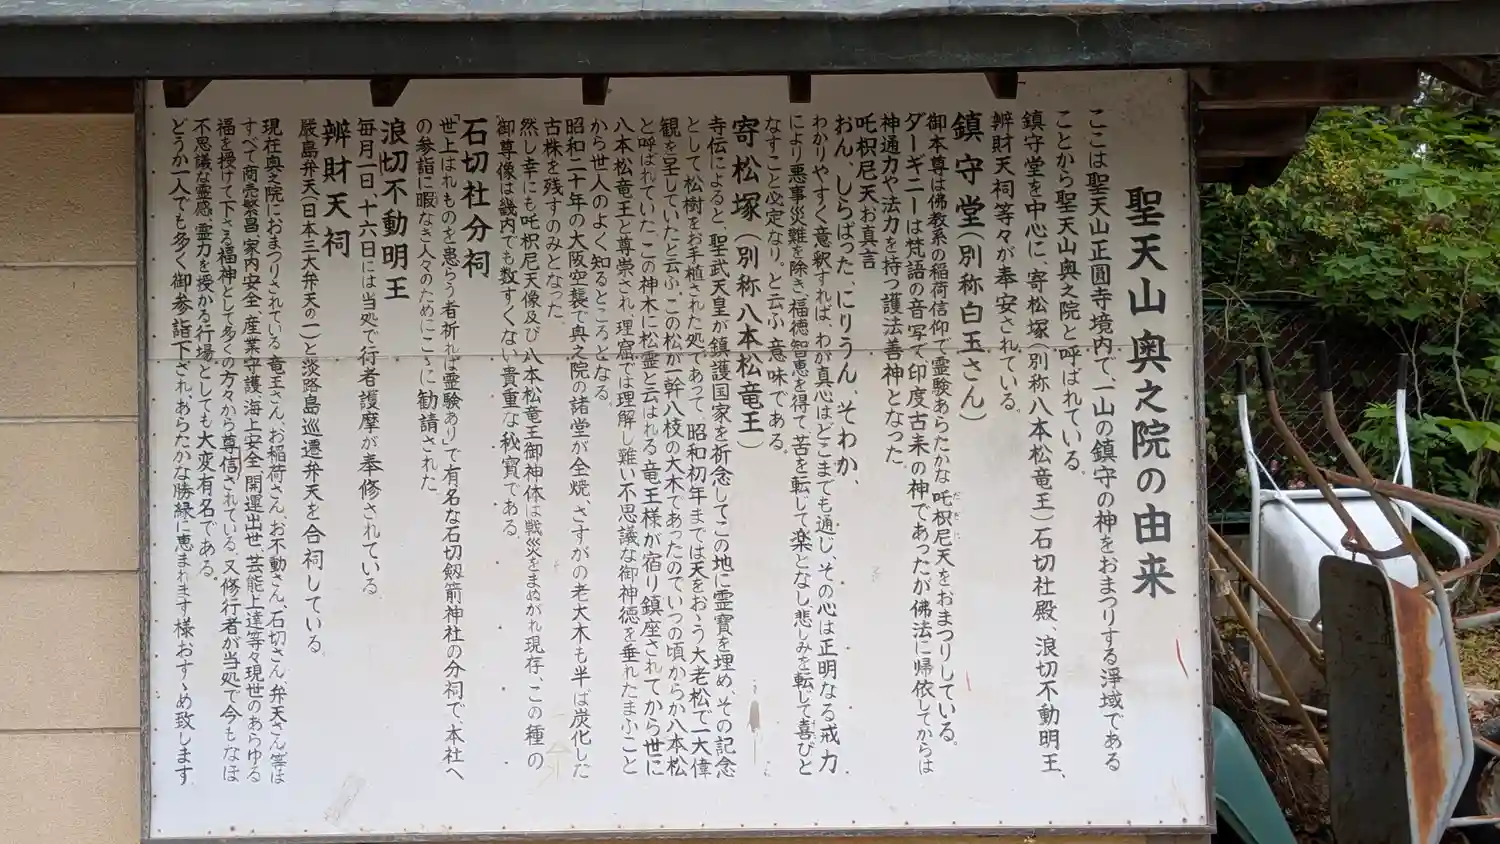 聖天山奥之院の由来
ここは聖天山正圓寺境内で、一山の鎮守の神をおまつりする淨域である
ことから聖天山奥之院と呼ばれている。
鎮守堂を中心に、寄松塚（別称八本松竜王）石切社殿、浪切不動明王、
辨財天祠等々が奉安されている。
鎮守堂（別称白玉さん）
御本尊は佛教系の稲荷信仰で霊験あらたかな吒枳尼天をおまつりしている。
ダーギニーは梵語の音写で印度古来の神であったが佛法に帰依してからは
神通力や法力を持つ護法善神となった
吒枳尼天お真言
おん、しらばった、にりうん、そわか、
わかりやすく意釈すれば、わが真心はどこまでも通し、その心は正明なる戒力
により悪事災難を除き、福徳智恵を得て苦を転じて楽となし悲しみを転じて喜びと
なすこと必定なり。と云ふ意味である。
寄松塚（別称八本松竜王）
寺伝によると、聖武天皇が鎮護国家を祈念してこの地に霊寶を埋め、その記念
として松樹をお手植された処であって、昭和初年までは天をおゝう大老松で一大偉
観を呈していたと云ふ、この松が一幹八枝の大木であったのでいつの頃からか八本松
と呼ばれていた、この神木に松霊と云はれる竜王様が宿り鎮座されてから世に
八本松竜王と尊崇され、理窟では理解し難い不思議な御神徳を垂れたまふこと
から世人のよく知るところとなる。
昭和二十年の大阪空襲で奥之院の諸堂が全焼、さすがの老大木も半ば炭化した
古株を残すのみとなった
然し幸にも吒枳尼天像及び八本松竜王御神体は戦災をまぬがれ現存、この種の
御尊像は幾内でも数すくない貴重な秘寶である
石切社分祠
「世上はれものを患らう者祈れば霊験あり」で有名な石切剱箭神社の分祠で、本社へ
の参詣に暇なき人々のためにこゝに勧請された
浪切不動明王
毎月一日、十六日には当処で行者護摩が奉修されている
辨財天祠
厳島弁天（日本三大弁天の一）と淡路島巡遷弁天を合祠している
現在奥之院におまつりされている竜王さん、お稲荷さん、お不動さん、石切さん、弁天さん等は
すべて商売繁昌、家内安全、産業守護、海上安全、開運出世、芸能上達等々現世のあらゆる
福を授けて下さる福神として多くの方々から尊信されている、又修行者が当処で今もなほ
不思議な霊感、霊力を授かる行場としても大変有名である。
どうか一人でも多く御参詣下され、あらたかな勝縁に恵まれます様おすゝめ致します